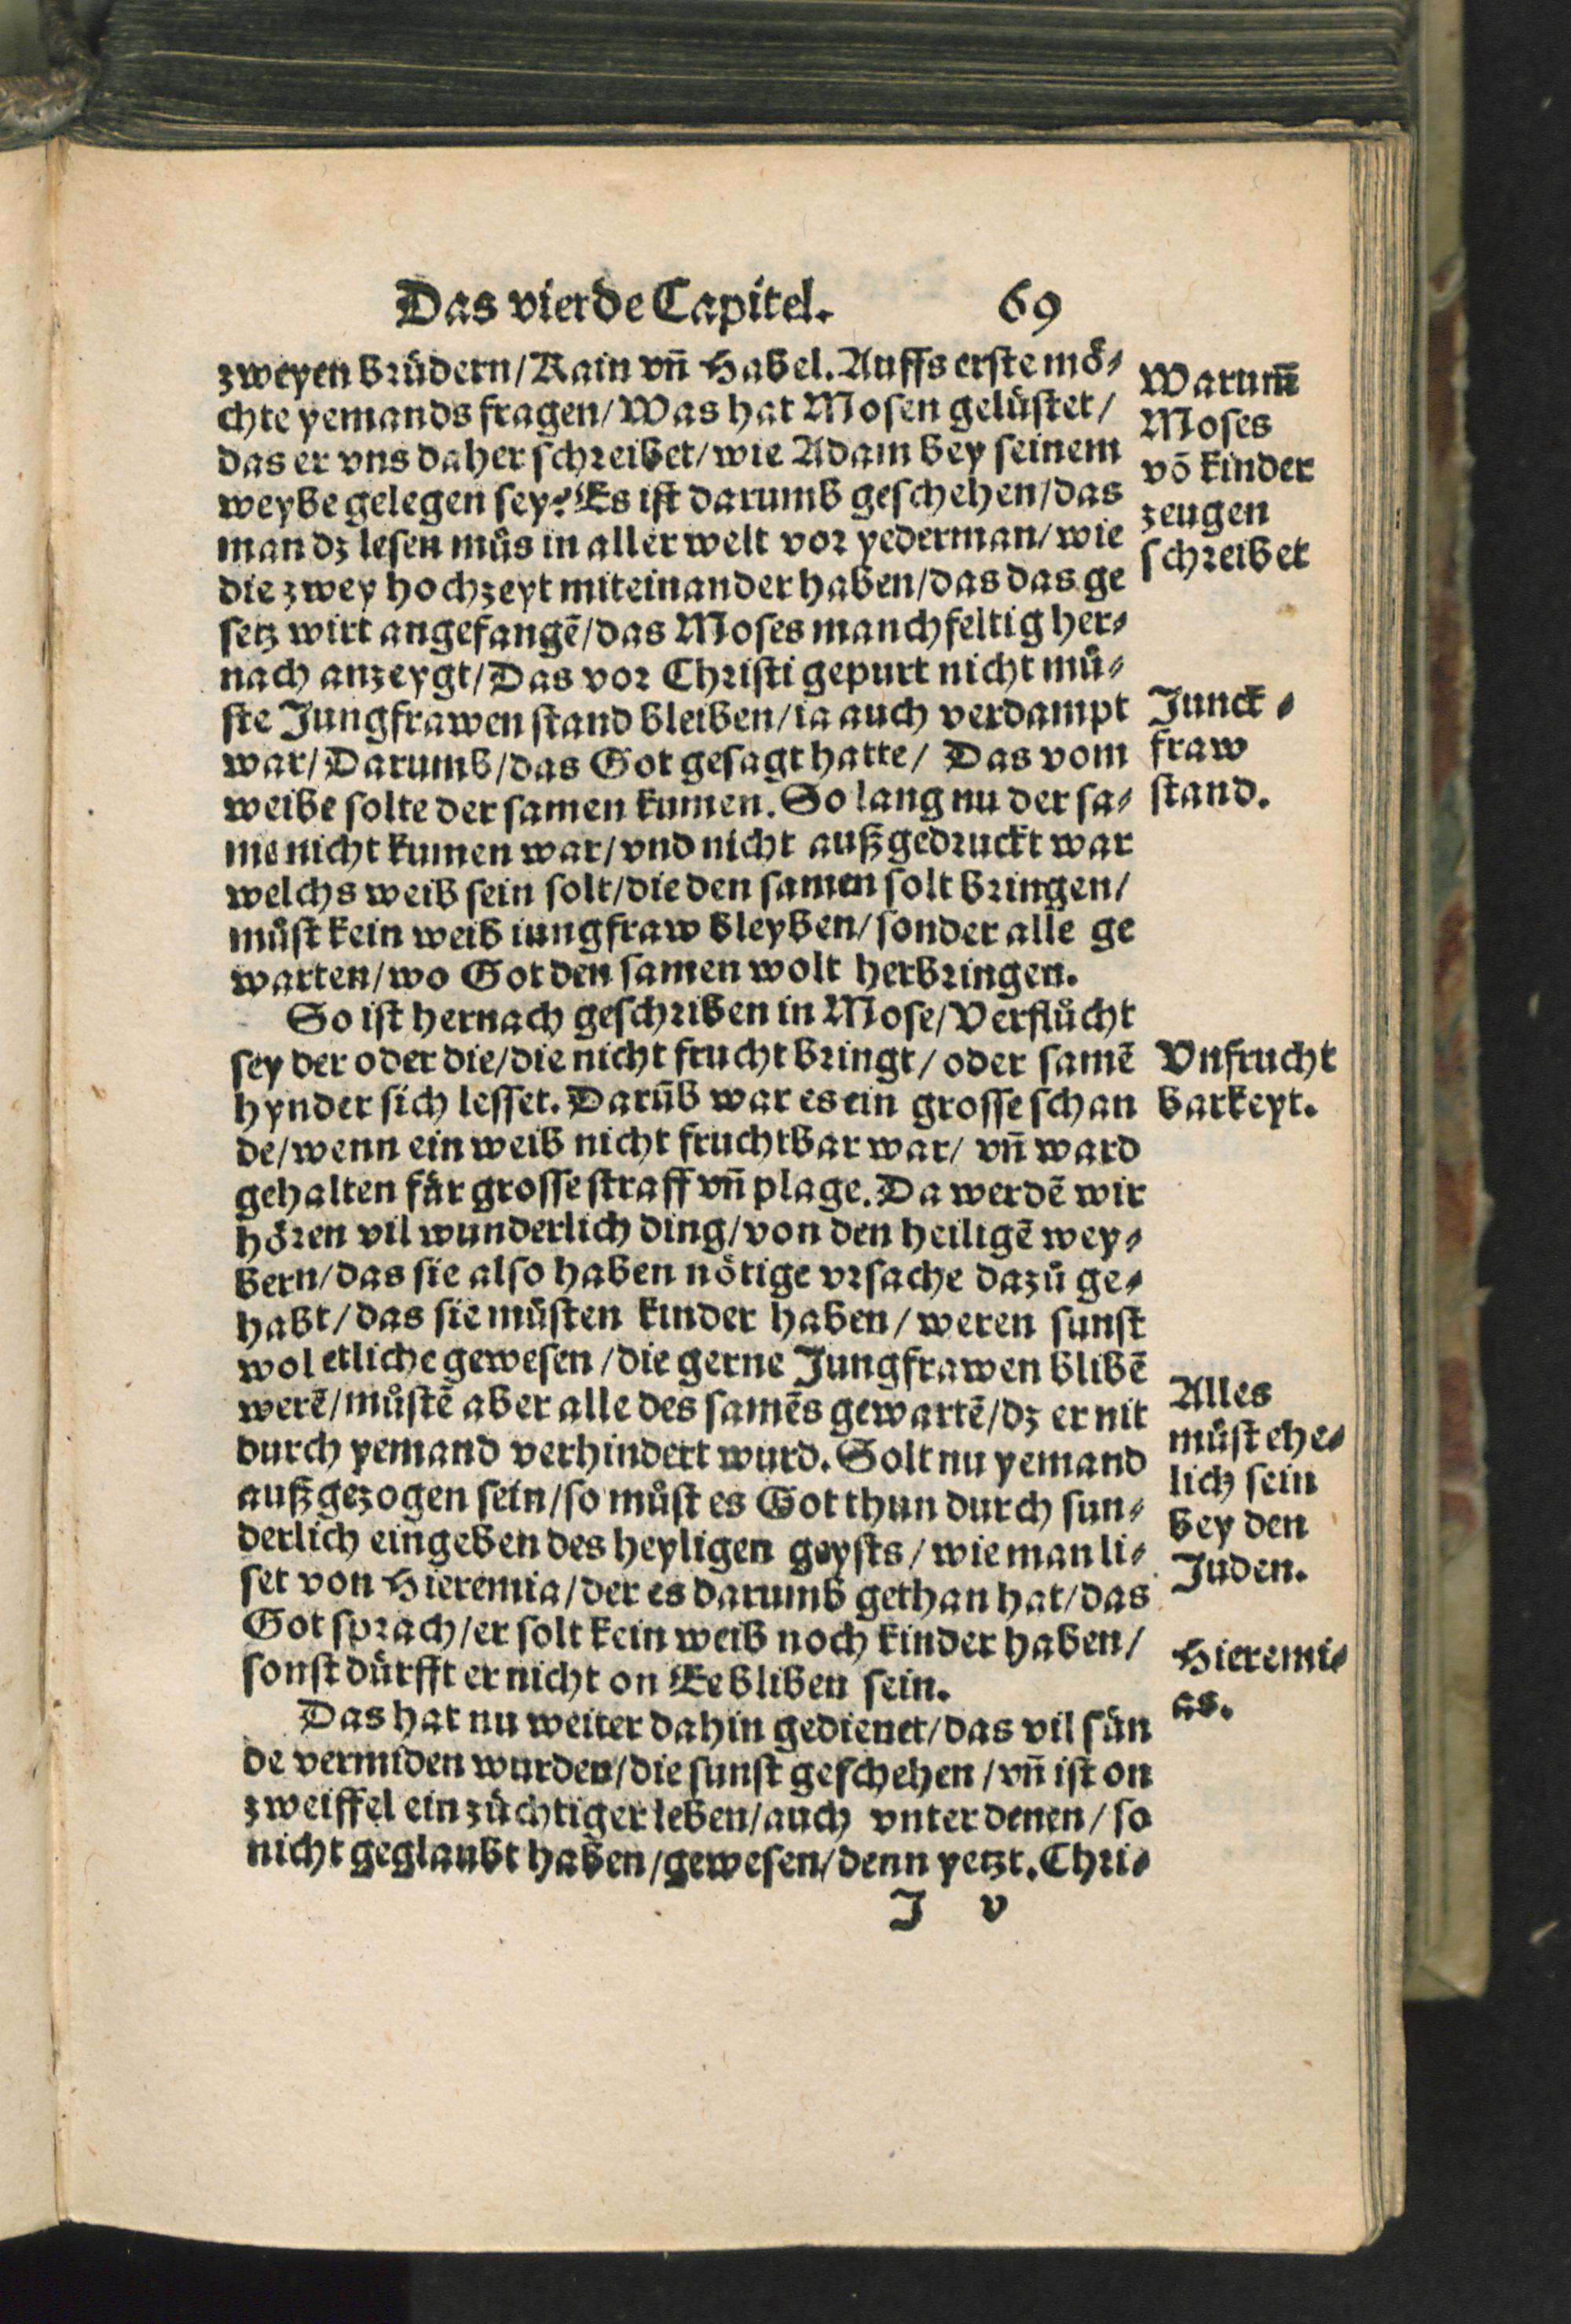 Das vierde Capitel. 69
zweyen brüdern/Kain vn̄ Habel. Auffs erste mö⸗
chte yemands fragen/Was hat Mosen gelüstet/
das er vns daher schreibet/wie Adam bey seinem
weybe gelegen sey? Es ist darumb geschehen/das
man dz lesen můs in aller welt vor yederman/wie
die zwey hochzeyt miteinander haben/das das ge
setz wirt angefangē/das Moses manchfeltig her⸗
nach anzeygt/Das vor Christi gepurt nicht mů⸗
ste Jungfrawen stand bleiben/ia auch verdampt
war/Darumb/das Got gesagt hatte/ Das vom
weibe solte der samen kumen. So lang nu der sa⸗
me nicht kumen war/vnd nicht außgedruckt war
welchs weib sein solt/die den samen solt bringen/
můst kein weib iungfraw bleyben/sonder alle ge
warten/wo Got den samen wolt herbringen.
So ist hernach geschriben in Mose/Verflůcht
sey der oder die/die nicht frucht bringt/oder samē
hynder sich lesset. Darūb war es ein grosse schan
de/wenn ein weib nicht fruchtbar war/ vn̄ ward
gehalten für grosse straff vn̄ plage. Da werdē wir
hören vil wunderlich ding/von den heiligē wey⸗
bern/das sie also haben nötige vrsache dazů ge⸗
habt/das sie můsten kinder haben/weren sunst
wol etliche gewesen/die gerne Jungfrawen blibē
werē/můstē aber alle des samēs gewartē/dz er nit
durch yemand verhindert wurd. Solt nu yemand
außgezogen sein/so můst es Got thun durch sun⸗
derlich eingeben des heyligen geysts/wie man li⸗
set von Hieremia/der es darumb gethan hat/das
Got sprach/er solt kein weib noch kinder haben/
sonst dürfft er nicht on Ee bliben sein.
Das hat nu weiter dahin gedienet/das vil sün
de vermiden wurden/die sunst geschehen/vn̄ ist on
zweiffel ein züchtiger leben/auch vnter denen/so
nicht geglaubt haben/gewesen/denn yetzt. Chri⸗
J v
Warum̄
Moses
vō kinder
zeugen
schreibet
Junck⸗
fraw
stand.
Vnfrucht
barkeyt.
Alles
můst ehe⸗
lich sein
bey den
Juden.
Hieremi⸗
as.